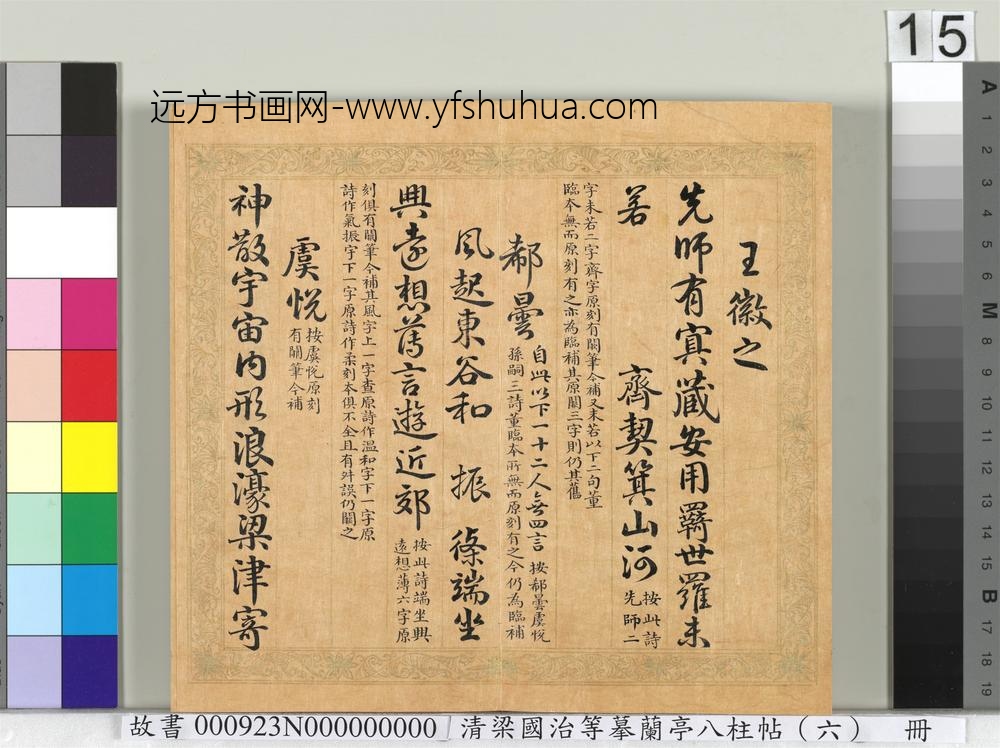 15
远方书画网-www.yfshuhua.com
王徽之
先師有冥藏安用羈世羅未
若　　　齊契箕山河按此詩
先師二
字未若二字齊字原刻有闕筆今補又未若以下二句董
臨本無而原刻有之亦為臨補其原闕三字則仍其舊
郗曇自此以下一十二人各四言按郗曇虞悅
孫嗣三詩董臨本所無而原刻有之今仍為臨補
風起東谷和　振條端坐
興遠想薄言遊近郊按此詩端坐興
遠想薄六字原
刻俱有闕筆今補其風字上一字查原詩作溫和字下一字原
詩作氣振字下一字原詩作柔刻本俱不全且有舛誤仍闕之
虞悅按虞悅原刻
有闕筆今補
神散宇宙內形浪濠梁津寄
A 1 2 3 4 5 6 M 8 9 10 11 12 13 14 15 B 17 18 19
故書 000923N000000000 清梁國治等摹蘭亭八柱帖（六） 冊